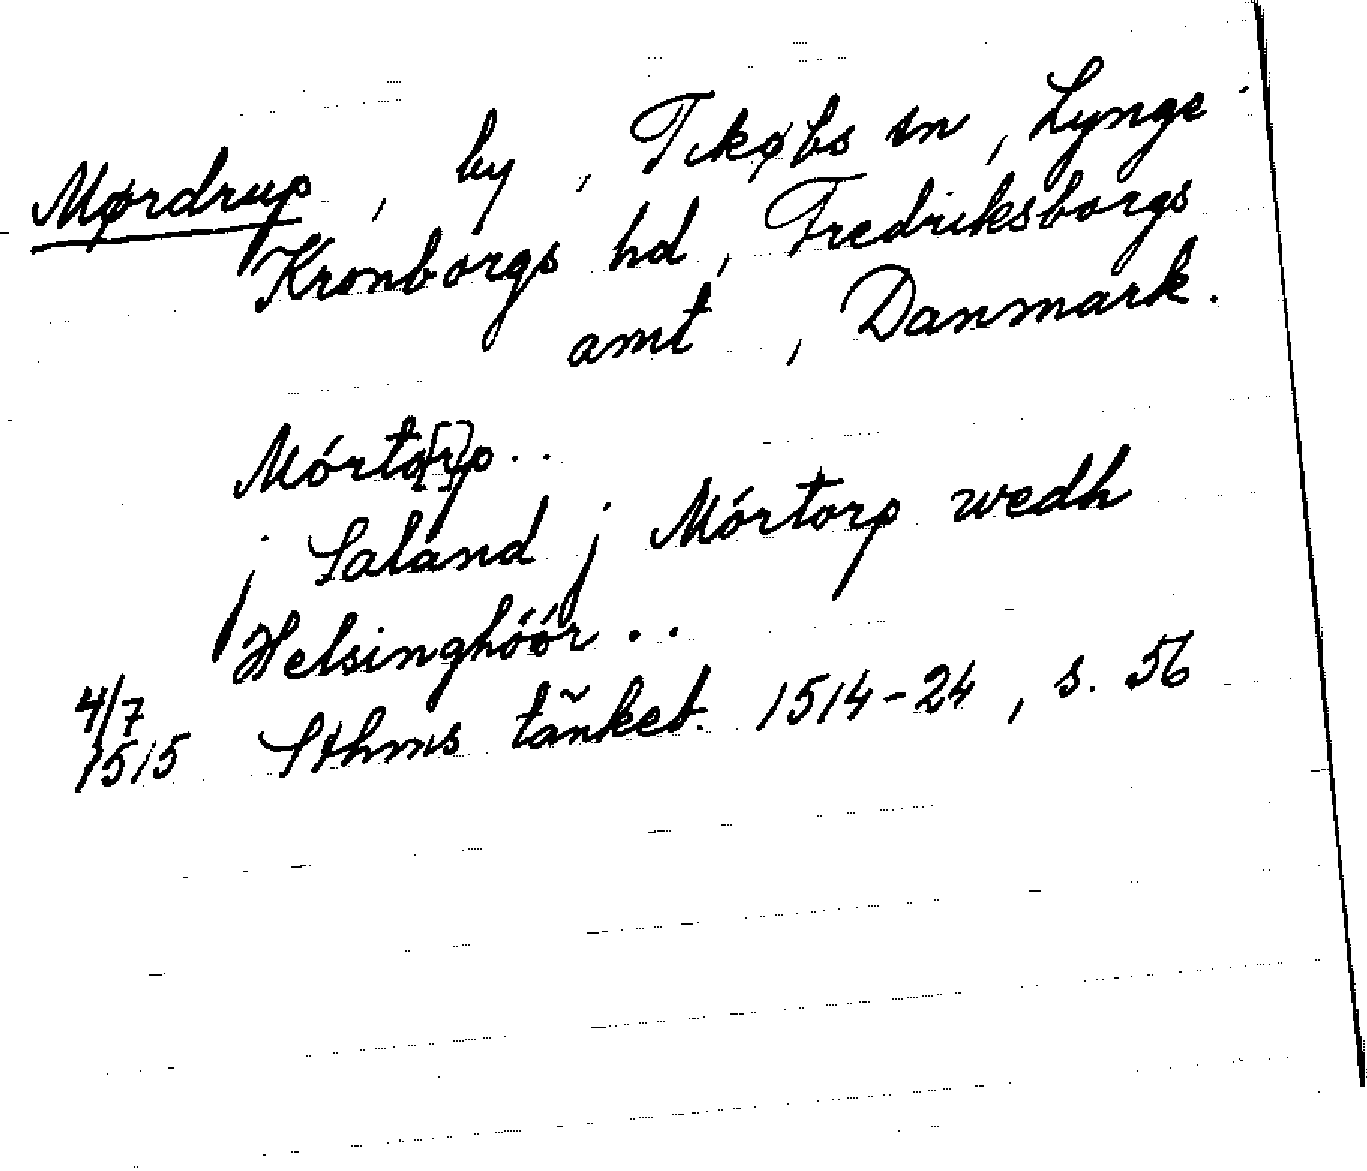 Mørdrup, by, Tikøbs sn, Lynge-
Kronborgs hd, Fredriksborgs
amt, Danmark.
Mórto[r]p..
j Saland j Mórtorp wedh
Helsinghóór..
4/7
1515 Sthms tänkeb. 1514-24, s. 56